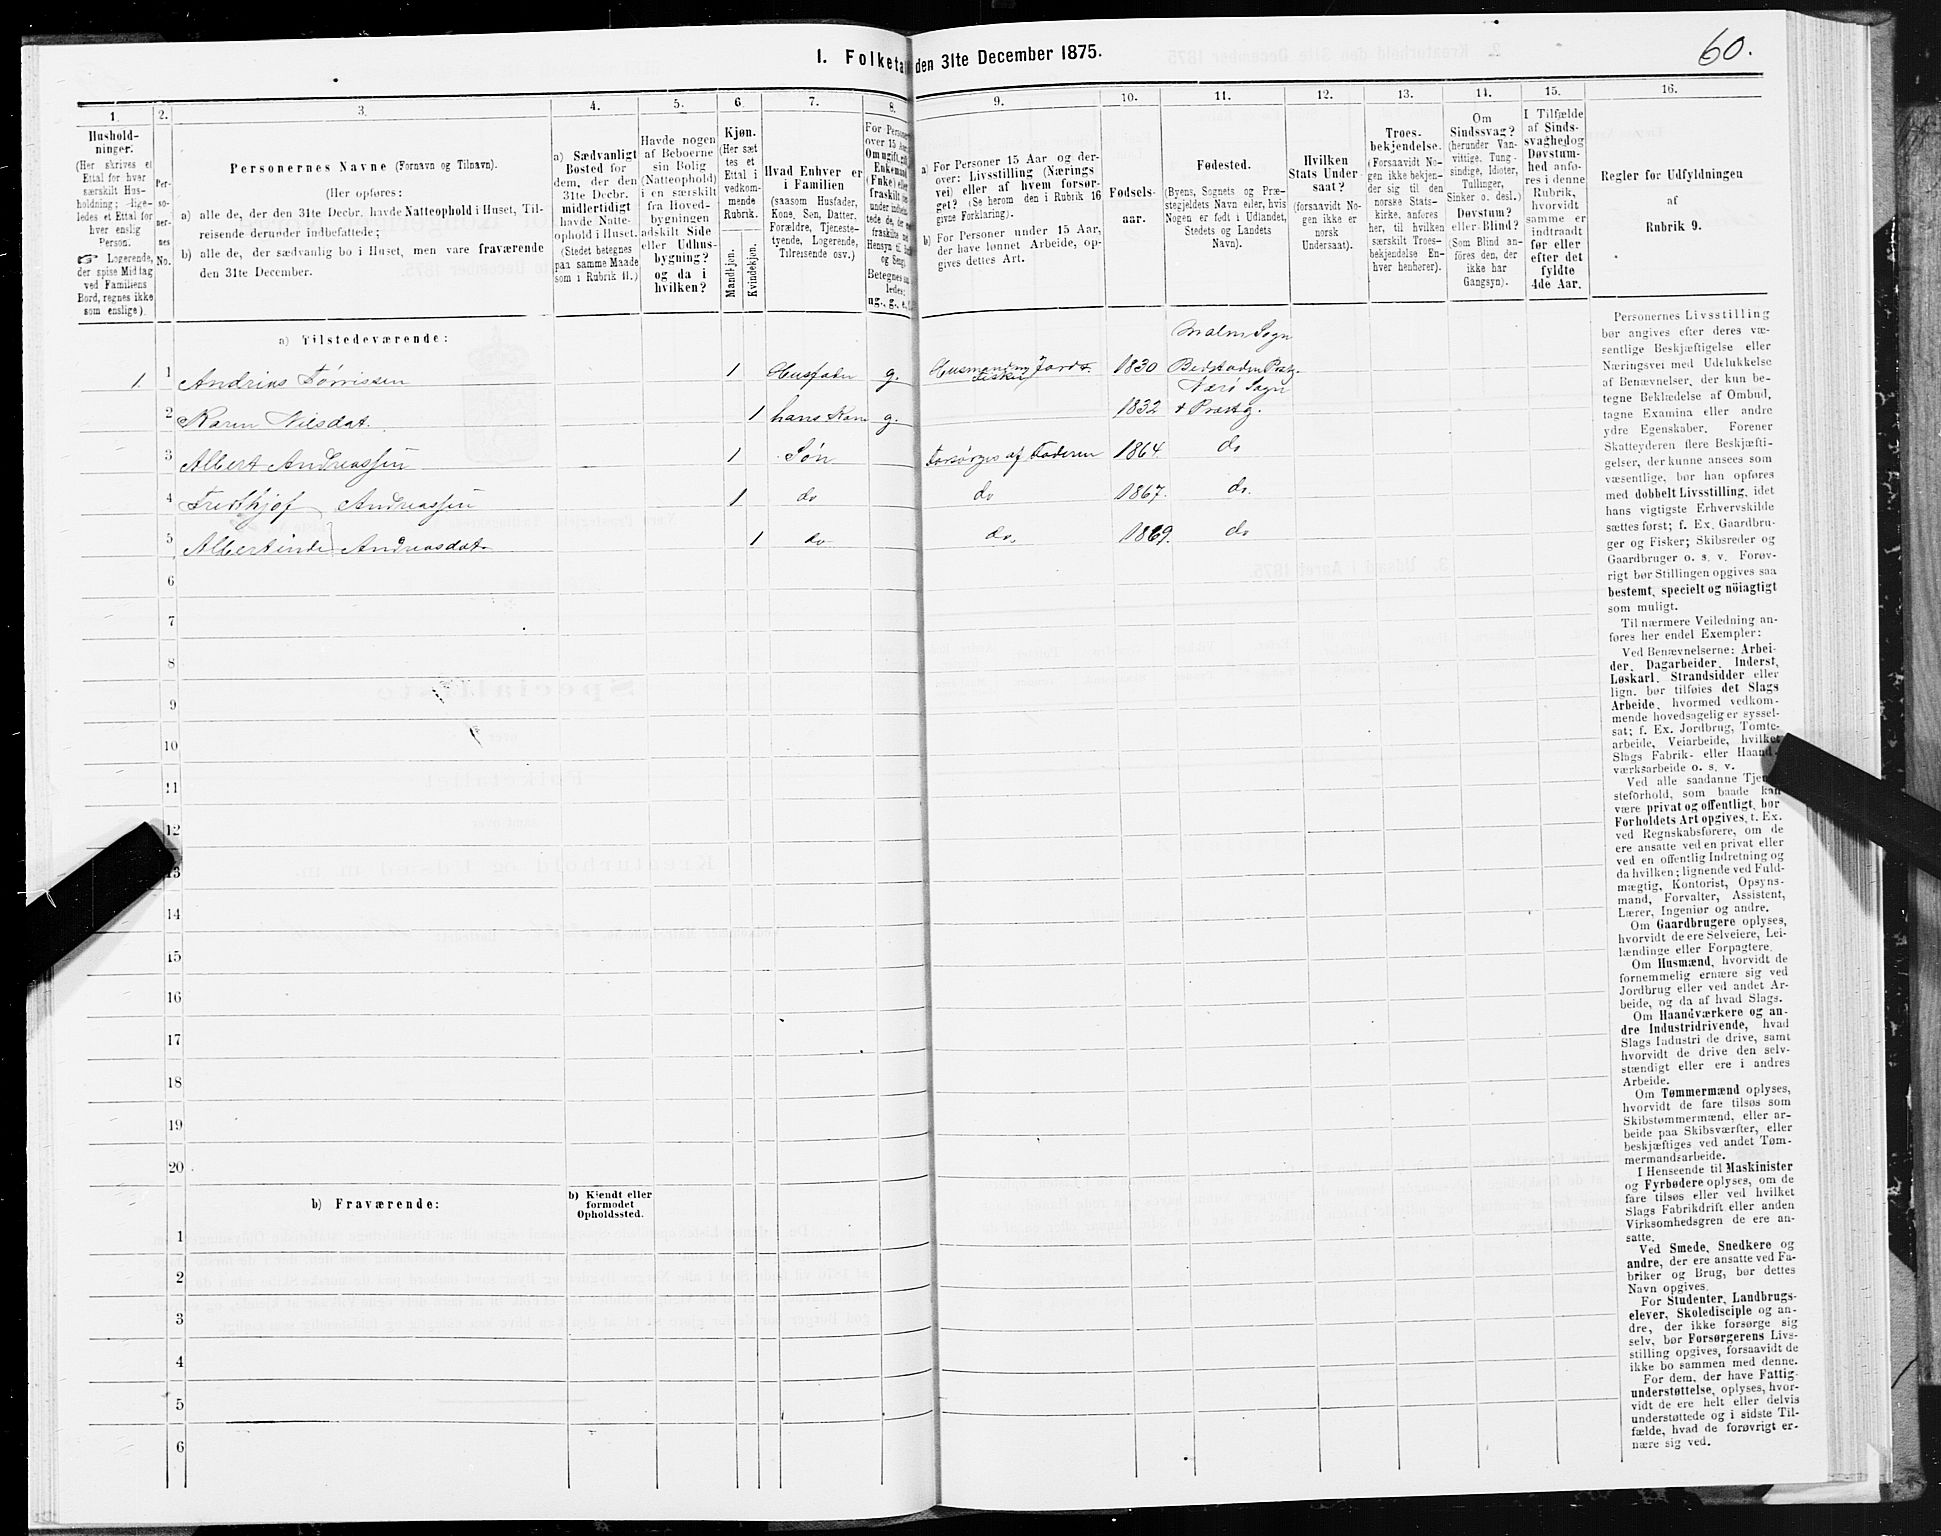 60.
I. Folketal den 31te December 1875.
1. 2. 3. 4. 5. 6. 7. 8. 9. 10. 11. 12. 13. 14. 15. 16.
Hushold-
ninger.
(Her skrives et
Ettal for hver
særskilt Hus-
holdning; lige-
ledes et Ettal for
hver enslig
Person.
☞ Logerende,
der spise Middag
ved Familiens
Bord, regnes ikke
som enslige).
Per-
so-
ner-
nes
No.
Personernes Navne (Fornavn og Tilnavn).
(Her opføres:
a) alle de, der den 31te Decbr. havde Natteophold i Huset, Til-
reisende derunder indbefattede;
b) alle de, der sædvanlig bo i Huset, men vare fraværende
den 31te December.
a) Sædvanligt
Bosted for
dem, der den
31te Decbr.
midlertidigt
havde Natte-
ophold i Huset.
(Stedet betegnes
paa samme Maade
som i Rubrik 11.)
Havde nogen
af Beboerne
sin Bolig
(Natteophold)
i en særskilt
fra Hoved-
bygningen
adskilt Side
eller Udhus-
bygning?
og da i
hvilken?
Kjøn.
(Her sæt
tes et
Ettal i
vedkom-
mende
Rubrik.
Mandkjøn.
Kvindekjøn.
Hvad Enhver er
i Familien
(saasom Husfader,
Kone, Søn, Datter,
Forældre, Tjeneste-
tyende, Logerende,
Tilreisende osv.)
For Person
over 15 Aar
Om ugift, gift
Enkemand
(Fnke) eller
fraskilt
Betegnes saa-
ledes:
ug., g., e., f.
a) For Personer 15 Aar og der-
over: Livsstilling (Nærings
vei) eller af hvem forsør-
get? (Se herom den i Rubrik 16
givne Forklaring).
b) For Personer under 15 Aar,
der have lønnet Arbeide, op-
gives dettes Art.
Fødsels-
aar.
Fødested.
(Byens, Sognets og Præ-
stegjeldets Navn eller, hvis
Nogen er født i Udlandet,
Stedets og Landets
Navn).
Hvilken
Stats Under
saat?
(forsaavidt No-
gen ikke er
norsk
Undersaat).
Troes-
bekjendelse.
(Forsaavidt No-
gen ikke bekjen-
der sig til den
norske Stats-
kirke, anføres
her, til hvilken
særskilt Troes-
bekjendelse En-
hver henhører).
Om
Sindssvag?
(herunder Van-
vittige, Tung-
sindige, Idioter,
Tullinger,
Sinker o. desl.)
Døvstum?
eller Blind?
(Som Blind an-
føres den, der
ikke har
Gangsyn).
I Tilfælde
af Sinds-
svaghed og
Døvstum-
hed anfø-
res i denne
Rubrik,
hvorvidt
samme er
indtraadt
før eller
efter det
fyldte
4de Aar.
Regler for Udfyldningen
af
Rubrik 9.
a) Tilstedeværende:
Malm Sogn
1 1 Andrias Tørrissen 1 Husfader g. Husmand m Jord & Fisker 1830 Bedstaden Prstg.
Nærø Sogn
2 Karen Nilsdat. 1 hans Kone g. 1832 & Præstg.
3 Albert Andreassen 1 Søn Forsørges af Faderen 1864 do
4 Fredthjof Andreassen 1 do do 1867. do.
5 Albertinde Andreasdat. 1 do do. 1869. do
6
7
8
9
10
11
12
13
14
15
16
17
18
19
20
b) Fraværende:
b) Kjendt eller
formodet
Opholdssted.
1
2
3
4
5
6
Personernes Livsstilling
bør angives efter deres væ-
sentlige Beskjæftigelse eller
Næringsvei med Udelukkelse
af Benævnelser, der kun be-
tegne Beklædelse af Ombud,
tagne Examina eller andre
ydre Egenskaber. Forener
Skatteyderen flere Beskjæfti-
gelser, der kunne ansees som
væsentlige, bør han opføres
med dobbelt Livsstilling, idet
hans vigtigste Erhvervskilde
sættes først; f. Ex. Gaardbru-
ger og Fisker; Skibsreder og
Gaardbruger o. s. v. Forøv-
rigt bør Stillingen opgives saa
bestemt, specielt og nöiagtigt
som muligt.
Til nærmere Veiledning an-
føres her endel Exempler:
Ved Benævnelserne: Arbei-
der, Dagarbeider, Inderst,
Løskarl, Strandsidder eller
lign. bør tilføies det Slags
Arbeide, hvormed vedkom-
mende hovedsagelig er syssel-
sat; f. Ex. Jordbrug, Tomte-
arbeide, Veiarbeide, hvilket
Slags Fabrik- eller Haand-
værksarbeide o. s. v.
Ved alle saadanne Tjene-
steforhold, som baade kan
være privat og offentligt, bør
Forholdets Art opgives, t. Ex.
ved Regnskabsførere, om de
ere ansatte ved en privat eller
ved en offentlig Indretning og
da hvilken; lignende ved Fuld-
mægtig, Kontorist, Opsyns-
mand, Forvalter, Assistent,
Lærer, Ingeniør og andre.
Om Gaardbrugere oplyses,
hvorvidt de ere Selveiere, Lei-
lændinge eller Forpagtere.
Om Husmænd, hvorvidt de
fornemmelig ernære sig ved
Jordbrug eller ved andet Ar-
beide, og da af hvad Slags.
Om Haandværkere og an-
dre Industridrivende, hvad
Slags Industri de drive, samt
hvorvidt de drive den selv-
stændigt eller ere i andres
Arbeide.
Om Tømmermænd oplyses,
hvorvidt de fare tilsøs som
Skibstømmermænd, eller ar-
beide paa Skibsværfter, eller
beskjæftiges ved andet Tøm-
mermandsarbeide.
I Henseende til Maskinister
og Fyrbødere oplyses, om de
fare tilsøs eller ved hvilket
Slags Fabrikdrift eller anden
Virksomhedsgren de ere an-
satte.
Ved Smede, Snedkere og
andre, der ere ansatte ved Fa-
briker og Brug, bør dettes
Navn opgives.
For Studenter, Landbrugs-
elever, Skoledisciple og an-
dre, der ikke forsørge sig
selv, bør Forsørgerens Livs-
stilling opgives, forsaavidt de
ikke bo sammen med denne.
For dem, der have Fattig-
understøttelse, oplyses, hvor-
vidt de ere helt eller delvis
understøttede og i sidste Til-
fælde, hvad de forøvrigt er-
nære sig ved.